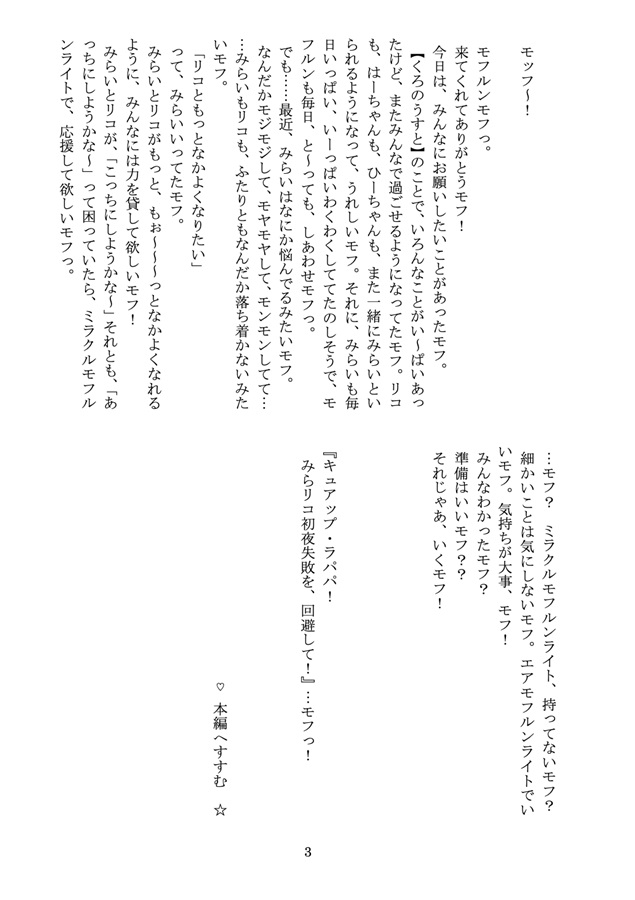 モッフ～！
モフルンモフっ。
来てくれてありがとうモフ！
今日は、みんなにお願いしたいことがあったモフ。
【くろのうすと】のことで、いろんなことがい～ぱいあっ
たけど、またみんなで過ごせるようになってたモフ。リコ
も、はーちゃんも、ひーちゃんも、また一緒にみらいとい
られるようになって、うれしいモフ。それに、みらいも毎
日いっぱい、いーっぱいわくわくしててたのしそうで、モ
フルンも毎日、と～っても、しあわせモフっ。
でも……最近、みらいはなにか悩んでるみたいモフ。
なんだかモジモジして、モヤモヤして、モンモンしてて…
…みらいもリコも、ふたりともなんだか落ち着かないみた
いモフ。
「リコともっとなかよくなりたい」
って、みらいいってたモフ。
みらいとリコがもっと、もぉ～～～っとなかよくなれる
ように、みんなには力を貸して欲しいモフ！
みらいとリコが、「こっちにしようかな～」それとも、「あ
っちにしようかな～」って困っていたら、ミラクルモフル
ンライトで、応援して欲しいモフっ。
…モフ？　ミラクルモフルンライト、持ってないモフ？
細かいことは気にしないモフ。エアモフルンライトでい
いモフ。気持ちが大事、モフ！
みんなわかったモフ？
準備はいいモフ？？
それじゃあ、いくモフ！
『キュアップ・ラパパ！
みらリコ初夜失敗を、回避して！』…モフっ！
♡　本編へすすむ　☆
3